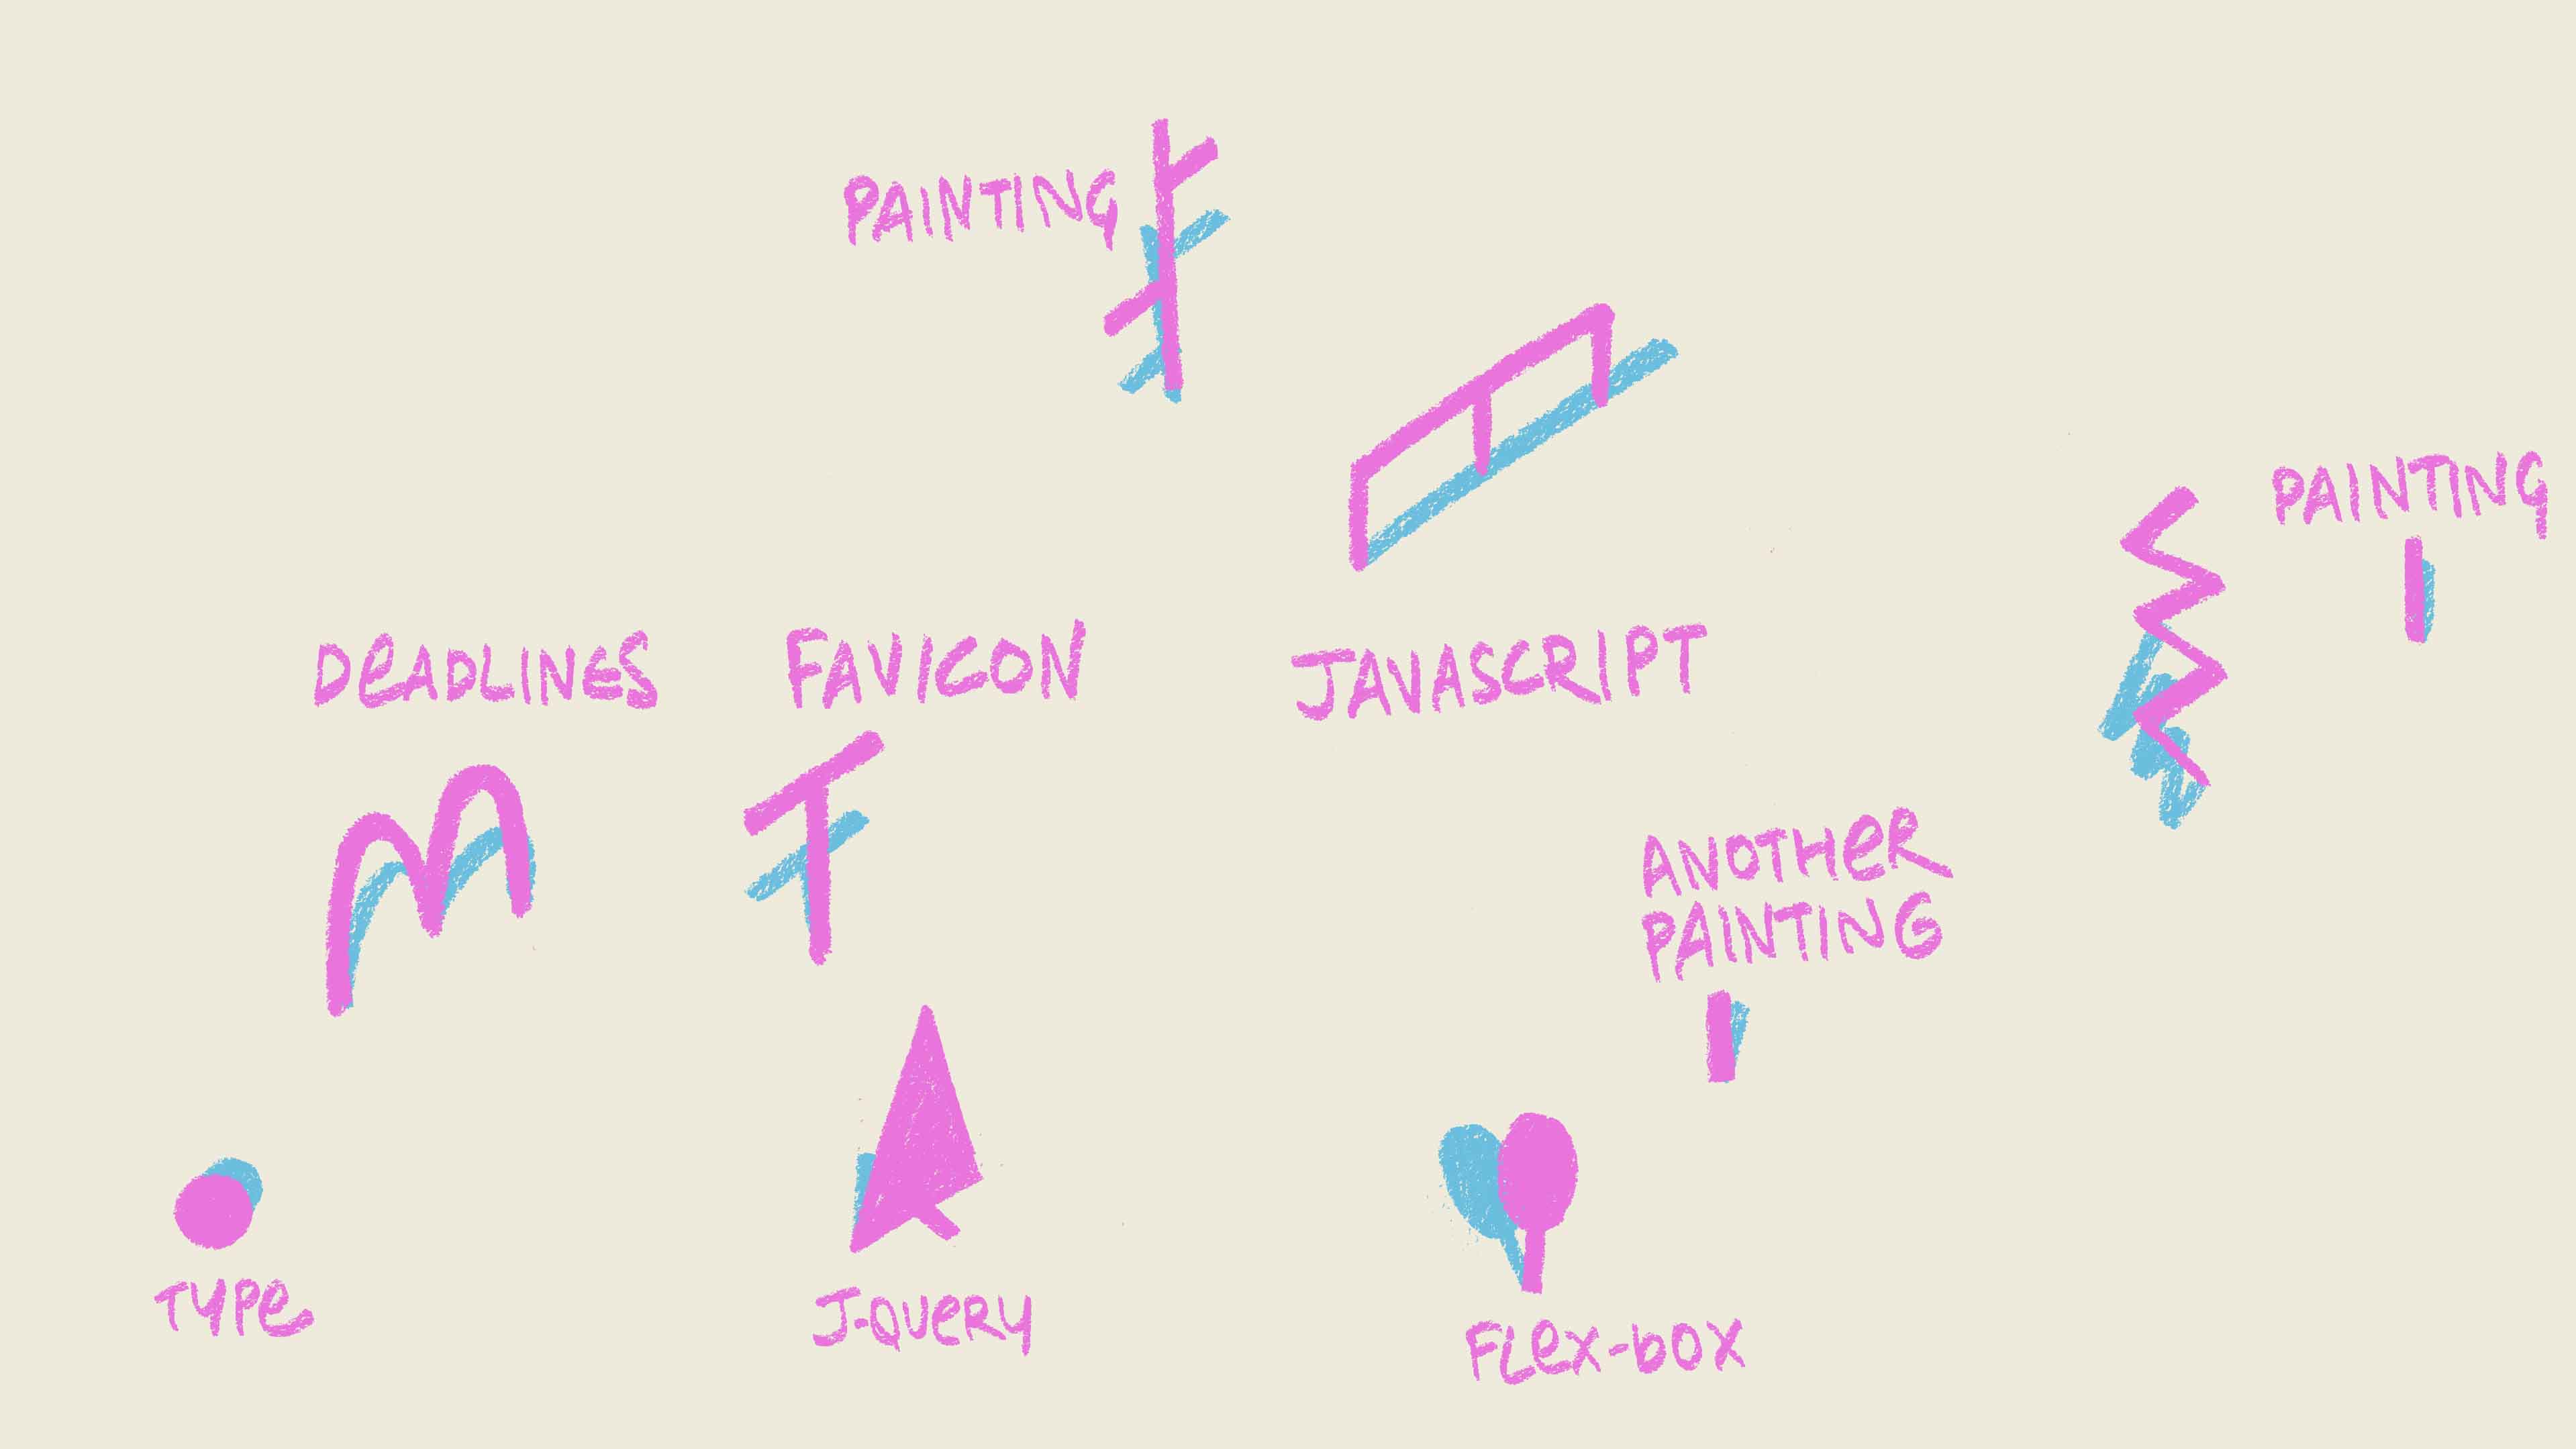 PAINTING
PAINTING
DEADLINES
FAVICON
JAVASCRIPT
ANOTHER
PAINTING
TYPE
J-QUERY
FLEX-BOX